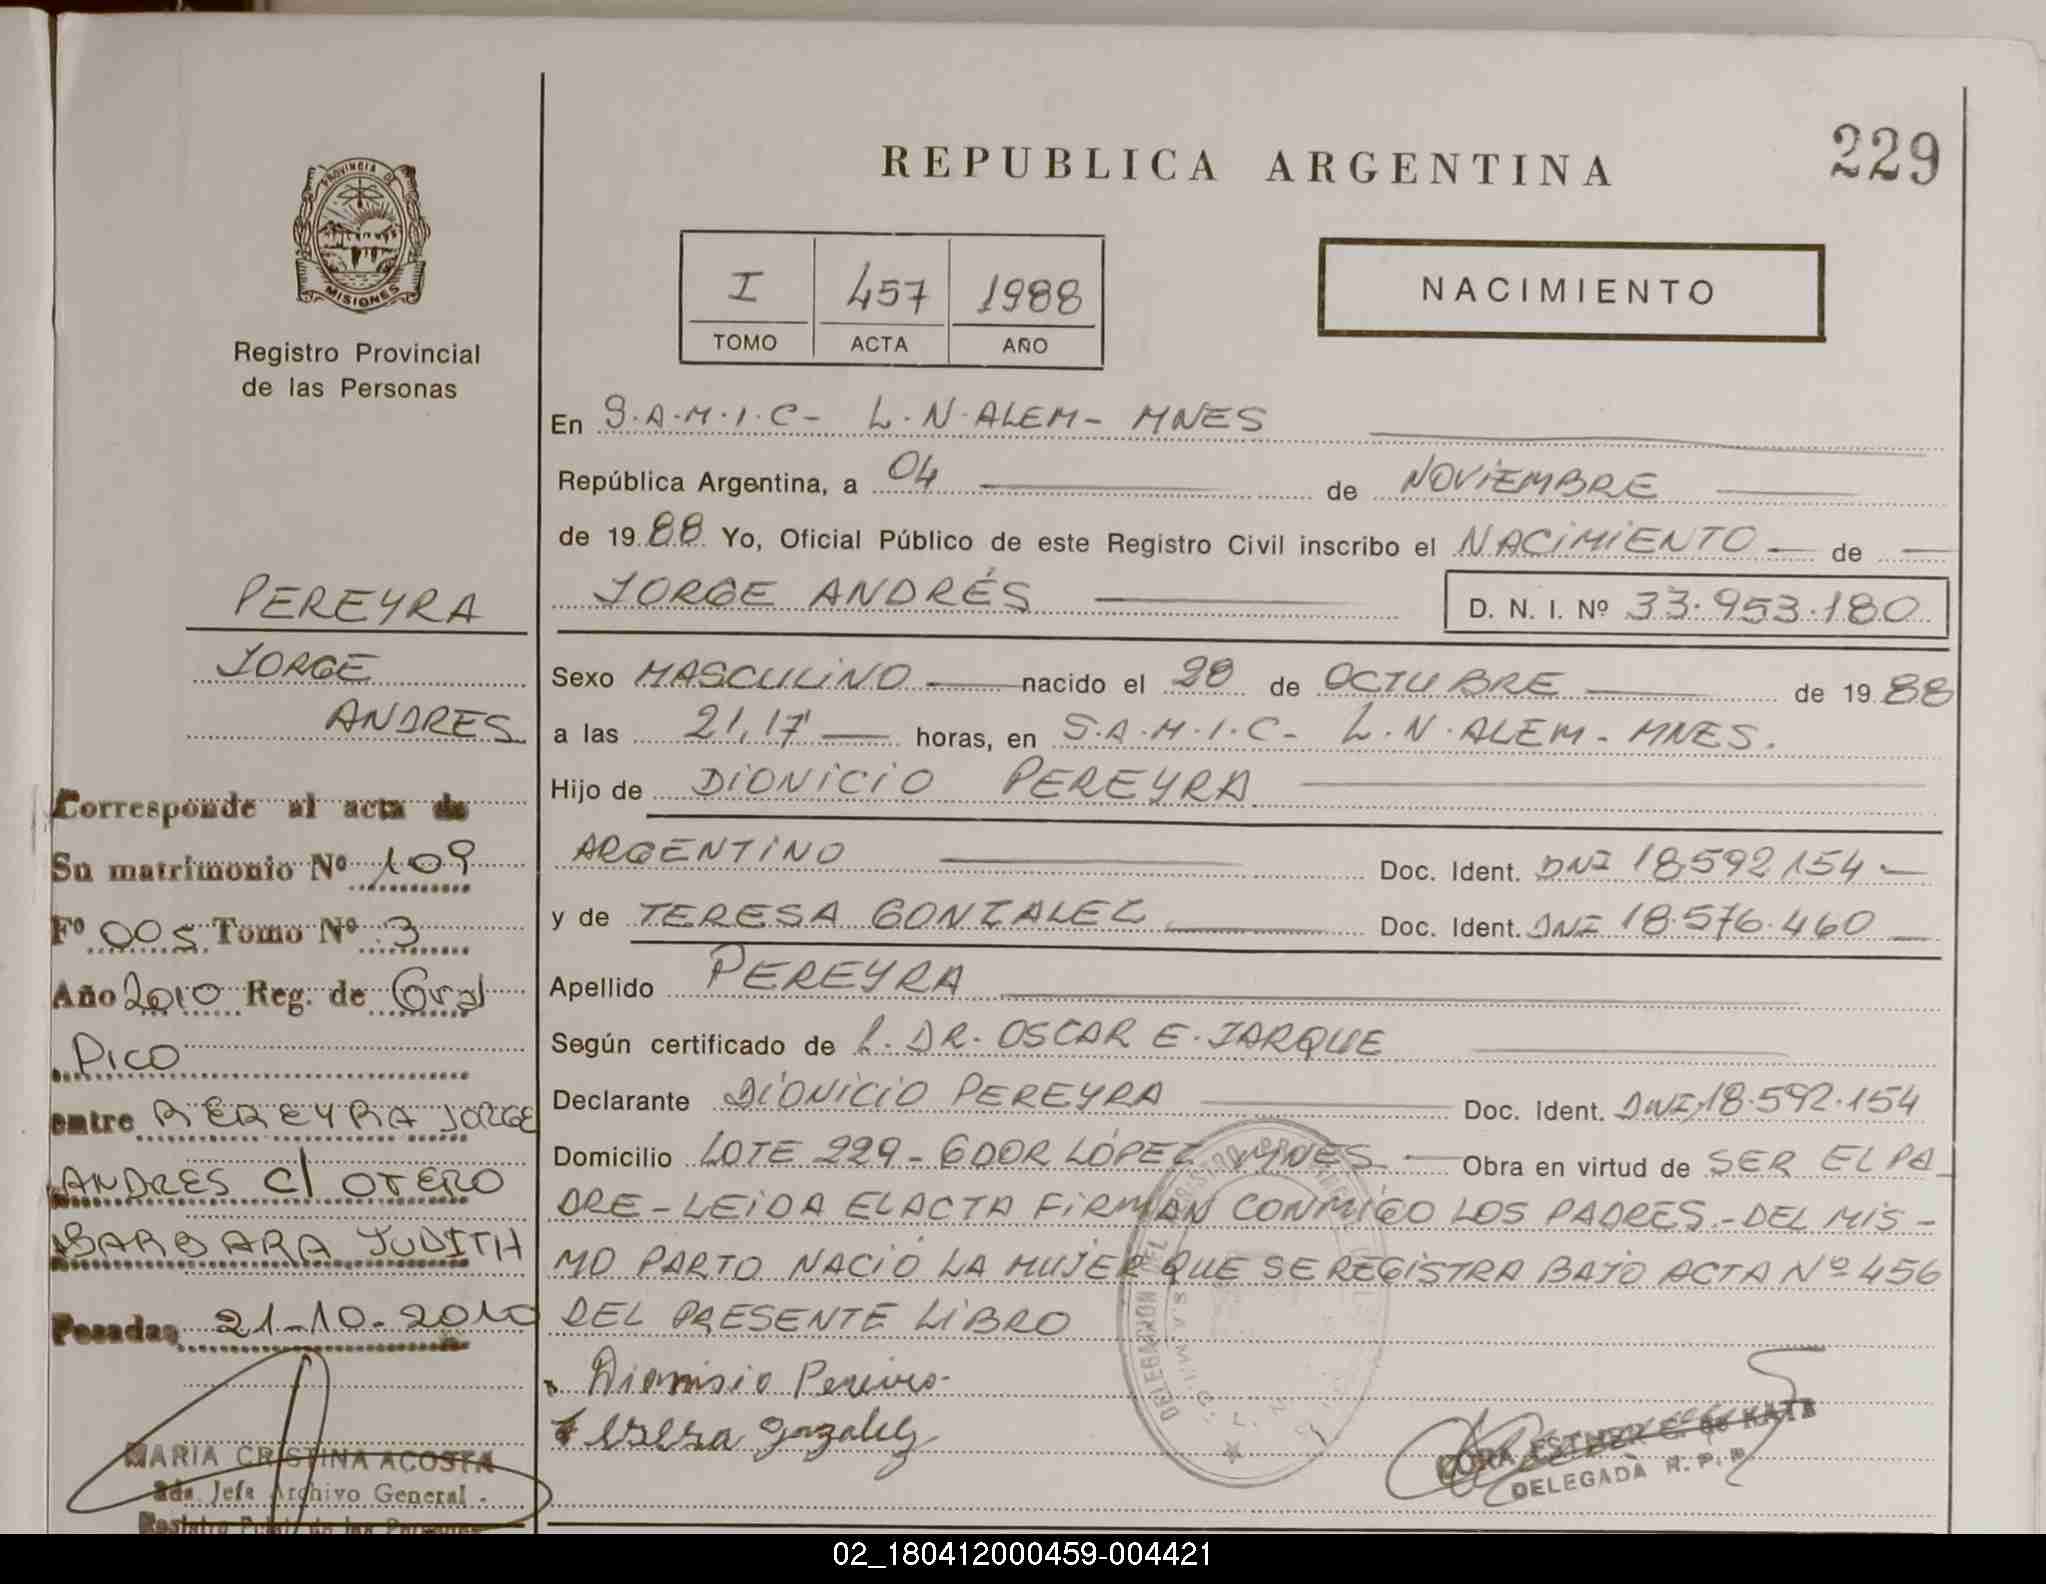 REPUBLICA ARGENTINA
229
PROVINCIA DE
MISIONES
Registro Provincial
de las Personas
I 457 1988
TOMO ACTA AÑO
NACIMIENTO
En S.A.M.I.C- L.N.ALEM- MNES
República Argentina, a 04 de NOVIEMBRE
de 19 88 Yo, Oficial Público de este Registro Civil inscribo el NACIMIENTO de
JORGE ANDRÉS D. N. I. Nº 33.953.180
Sexo MASCULINO nacido el 28 de OCTUBRE de 19 88
a las 21,17 horas, en S.A.M.I.C- L.N.ALEM- MNES.
Hijo de DIONICIO PEREYRA
ARGENTINO Doc. Ident. DNI 18.592.154
y de TERESA GONZALEZ Doc. Ident. DNI 18.576.460
Apellido PEREYRA
Según certificado de DR. OSCAR E. JARQUE
Declarante DIONICIO PEREYRA Doc. Ident. DNI 18.592.154
Domicilio LOTE 229- GDOR LÓPEZ MNES Obra en virtud de SER EL PA
DRE-LEIDA EL ACTA FIRMAN CONMIGO LOS PADRES.-DEL MIS-
MO PARTO NACIÓ LA MUJER QUE SE REGISTRA BAJO ACTA Nº 456
DEL PRESENTE LIBRO
Teresa Gozalez
CORA ESTHER C. de KATZ
DELEGADA R. P. P.
PEREYRA
JORGE
ANDRES
Corresponde al acta de
Su matrimonio Nº 109
Fº 005 Tomo Nº 3
Año 2010 Reg. de Gral
PICO
entre PEREYRA JORGE
ANDRES C/ OTERO
BARBARA JUDITH
Posadas 21-10-2010
MARIA CRISTINA ACOSTA
2da. Jefa Archivo General
Registro Pcial de las Personas
02_180412000459-004421